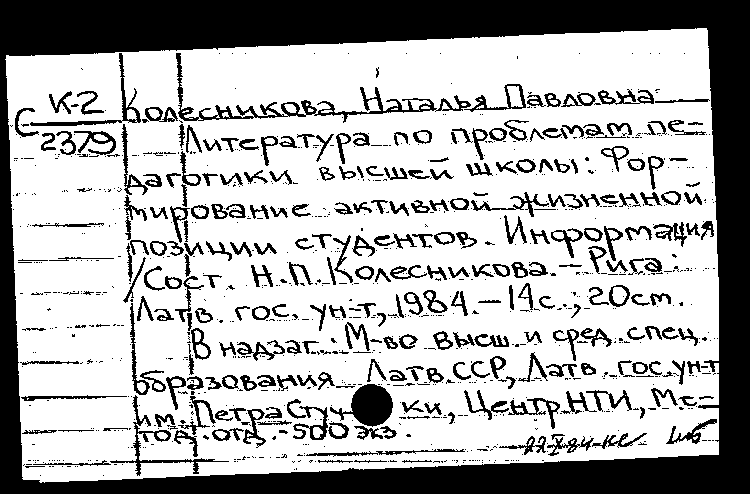 К-2
С 2379
Колесникова, Наталья Павловна
Литература по проблемам пе-
дагогики высшей школы: Фор-
мирование активной жизненной
позиции студентов. Информация
/Сост. Н.П. Колесникова. – Рига:
Латв. гос. ун-т, 1984. – 14 с.; 20 см.
В надзаг.: М-во высш. и сред. спец.
образования Латв. ССР, Латв. гос. ун-т
им. Петра Стуч ки, Центр НТИ, Ме-
тод. отд. - 500 экз.